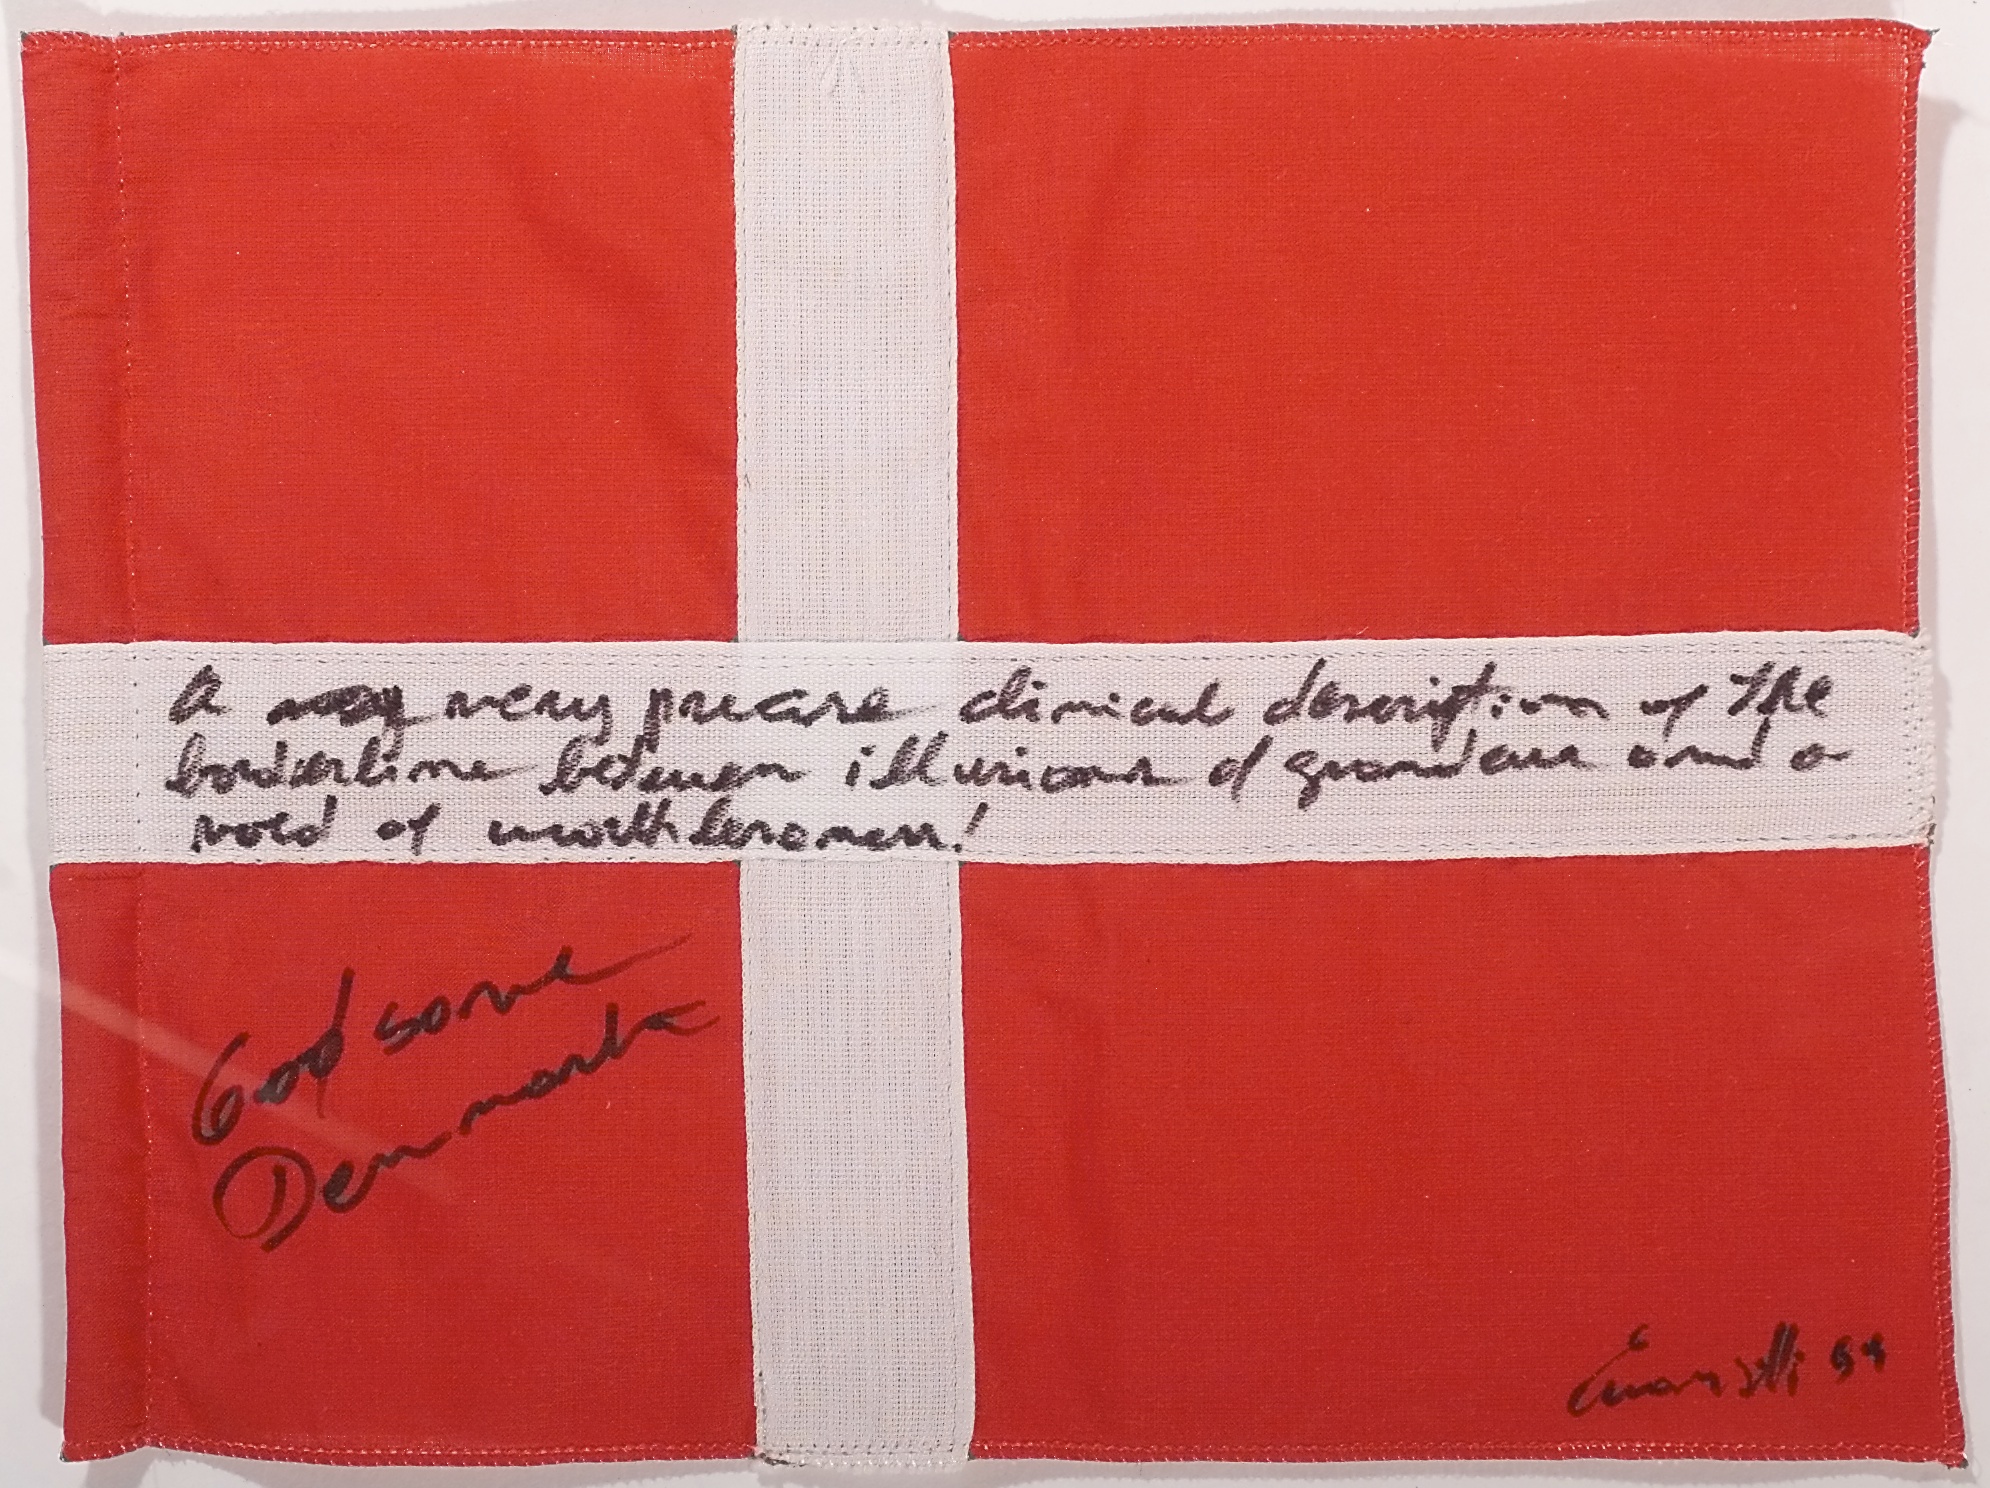 A very precise clinical description of the
borderline between illusions of grandeur and a
void of worthlessness!
God save
Denmark